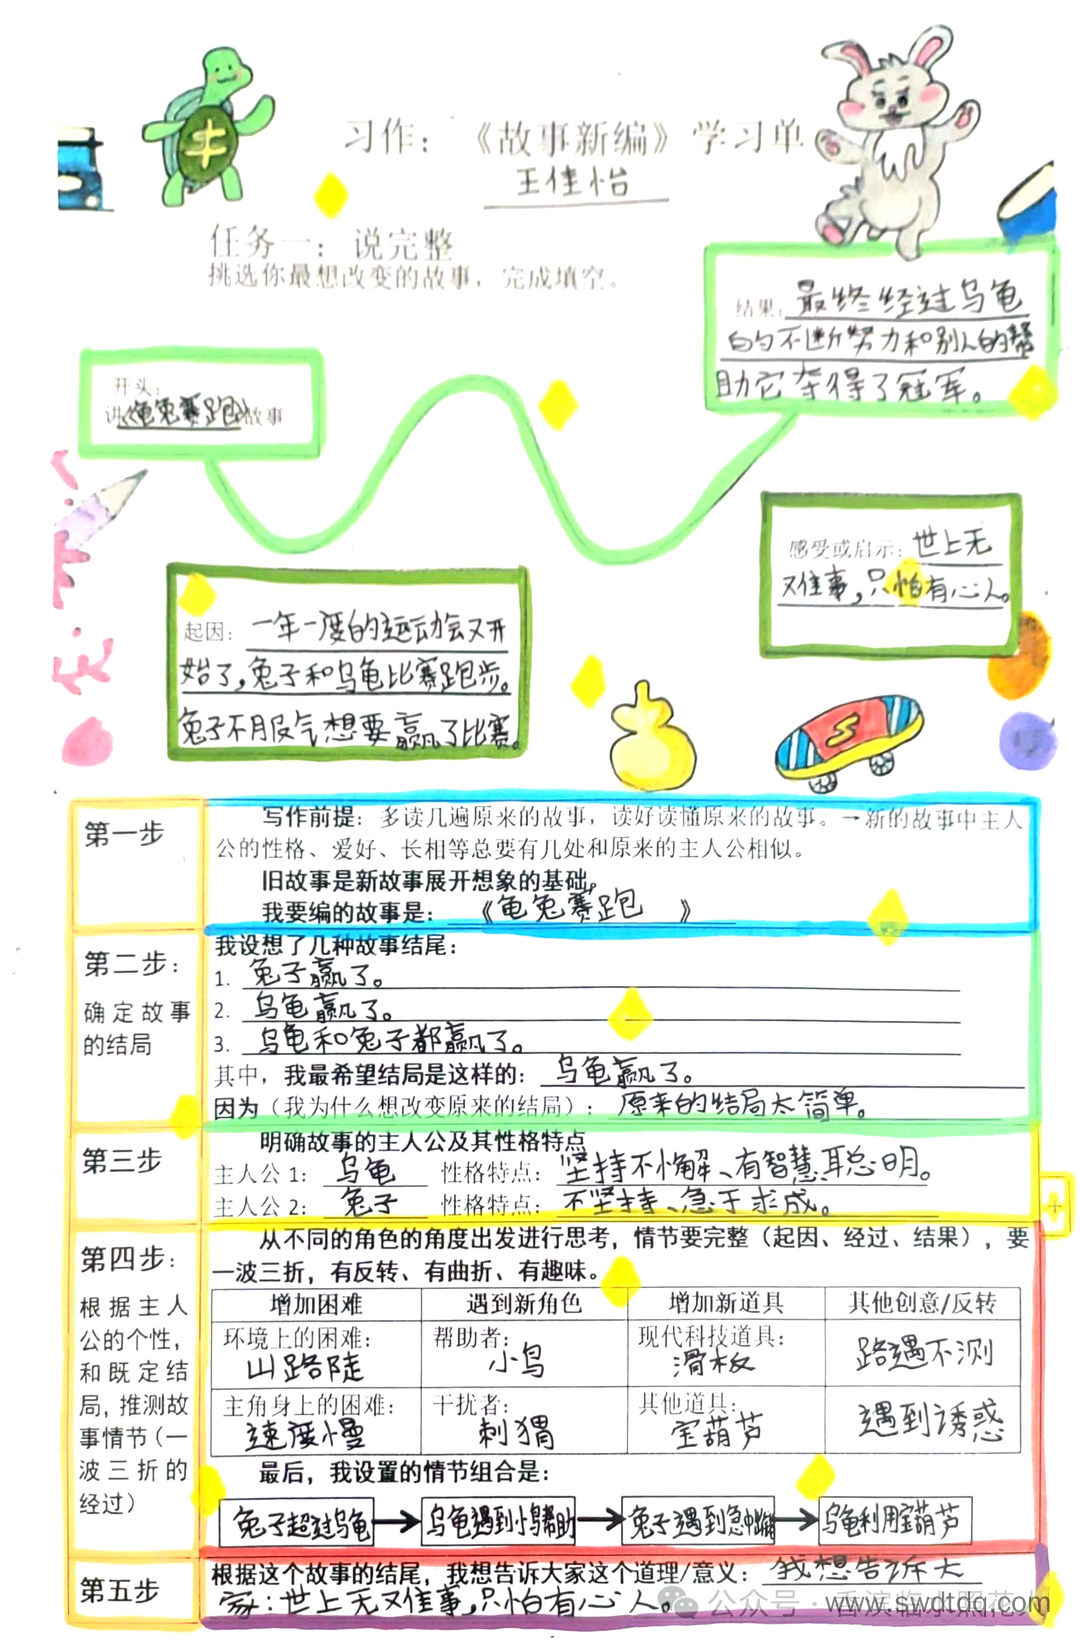 习作：《故事新编》学习单
王佳怡
任务一：说完整
挑选你最想改变的故事，完成填空。
结果：最终经过乌龟
的不断努力和别人的帮
助它夺得了冠军。
开头：
讲《龟兔赛跑》故事
感受或启示：世上无
难事，只怕有心人。
起因：一年一度的运动会又开
始了，兔子和乌龟比赛跑步。
兔子不服气想要赢了比赛。
第一步
写作前提：多读几遍原来的故事，读好读懂原来的故事。→新的故事中主人
公的性格、爱好、长相等总要有几处和原来的主人公相似。
旧故事是新故事展开想象的基础。
我要编的故事是：《龟兔赛跑》
第二步：
确定故事
的结局
我设想了几种故事结尾：
1. 兔子赢了。
2. 乌龟赢了。
3. 乌龟和兔子都赢了。
其中，我最希望结局是这样的：乌龟赢了。
因为（我为什么想改变原来的结局）：原来的结局太简单。
第三步
明确故事的主人公及其性格特点
主人公1：乌龟 性格特点：坚持不懈、有智慧聪明。
主人公2：兔子 性格特点：不坚持、急于求成。
第四步：
根据主人
公的个性，
和既定结
局，推测故
事情节（一
波三折的
经过）
从不同的角色的角度出发进行思考，情节要完整（起因、经过、结果），要
一波三折，有反转、有曲折、有趣味。
增加困难 遇到新角色 增加新道具 其他创意/反转
环境上的困难： 帮助者： 现代科技道具：
山路陡 小鸟 滑板 路遇不测
主角身上的困难： 干扰者： 其他道具：
速度慢 刺猬 宝葫芦 遇到诱惑
最后，我设置的情节组合是：
兔子超过乌龟 → 乌龟遇到小鸟帮助 → 兔子遇到 → 乌龟利用宝葫芦
第五步
根据这个故事的结尾，我想告诉大家这个道理/意义：我想告诉大
家：世上无难事，只怕有心人。
公众号·香滨临水照花
www.swdtdq.com